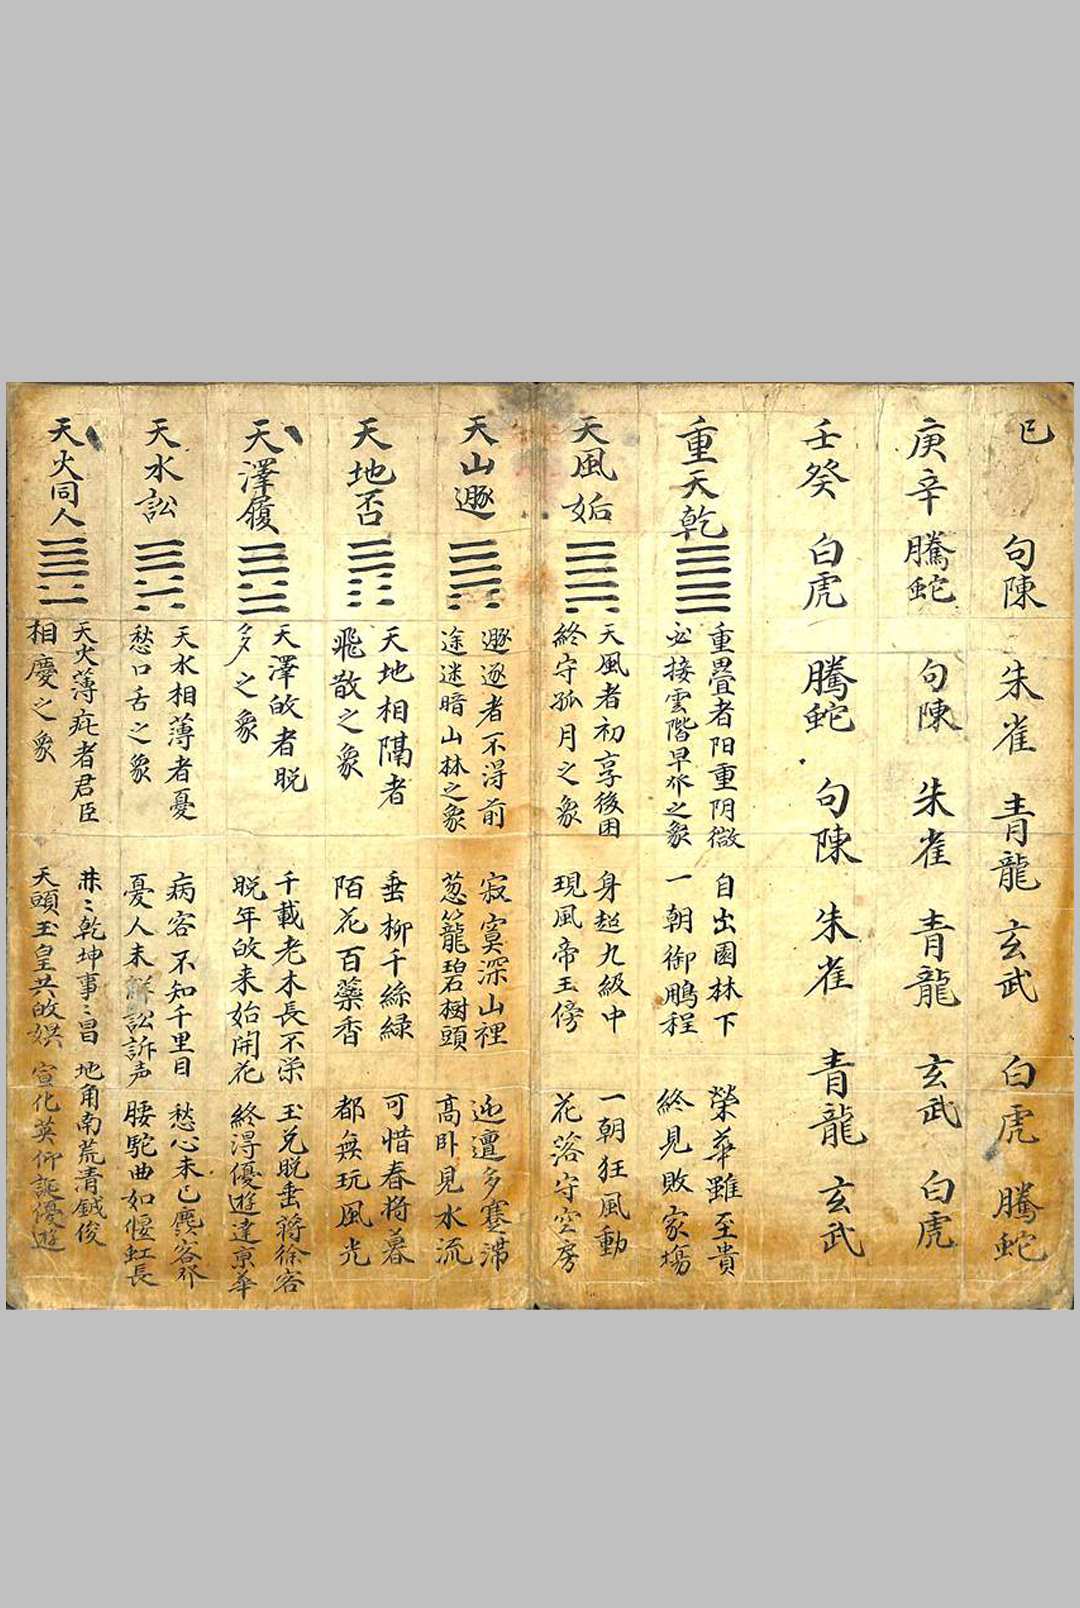 巳 句陳 朱雀 青龍 玄武 白虎 騰蛇
庚辛 騰蛇 句陳 朱雀 青龍 玄武 白虎
壬癸 白虎 騰蛇 句陳 朱雀 青龍 玄武
重天乾
重畳者阳重阴微
必接雲階早亦之象
自出園林下
一朝御鵬程
榮華雖至貴
終見敗家塲
天風姤
天風者初享後困
終守孤月之象
身超九級中
現風帝王傍
一朝狂風動
花落守空房
天山遯
遯逐者不淂前
途迷暗山林之象
寂寞深山裡
葱籠碧樹頭
迍邅多蹇滞
高卧見水流
天地否
天地相隔者
飛散之象
垂柳千絲緑
陌花百藥香
可惜春将暮
都無玩風光
天澤履
天澤故者脱
多之象
千載老木長不栄
脱年故来始開花
玉兌脱垂蔣徐客
終淂優遊達京華
天水訟
天水相薄者憂
愁口舌之象
病客不知千里目
憂人未鮮訟訴声
愁心未已
腰駝曲如偃虹長
天火同人
天火薄疪者君臣
相慶之象
井〻乾坤事〻昌
天頭玉皇共故娯
地角南荒清鉞俊
宣化英仰誕優遊